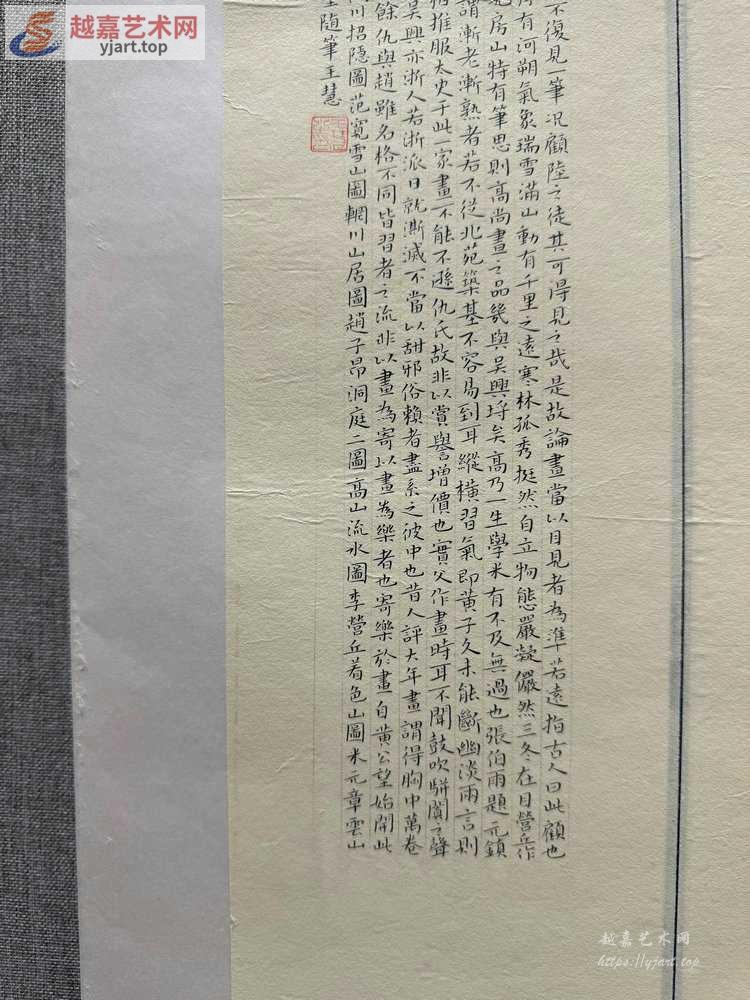 不復見一筆况顧陸之徒其可得見之哉是故論畫當以目見者為準若遠指古人曰此顧也
有河朔氣象瑞雪滿山動有千里之遠寒林孤秀挺然自立物態嚴凝儼然三冬在目營丘作
房山特有筆思則高尚畫之品幾與吳興埒矣高乃一生學米有不及無過也張伯雨題元鎮
謂漸老漸熟者若不從北苑築基不容易到耳縱橫習氣即黄子久未能斷幽淡兩言則
推服太史于此一家畫不能不遜仇氏故非以賞譽增價也實父作畫時耳不聞鼓吹駢闐之聲
吳興亦浙人若浙派日就澌滅不當以甜邪俗賴者盡系之彼中也昔人評大年畫謂得胸中萬卷
餘仇與趙雖名格不同皆習者之流非以畫為寄以畫為樂者也寄樂於畫自黄公望始開此
川招隱圖范寬雪山圖輞川山居圖趙子昂洞庭二圖高山流水圖李營丘着色山圖米元章雲山
隨筆王慧
越嘉艺术网
yjart.top
越嘉艺术网
https://yjart.top